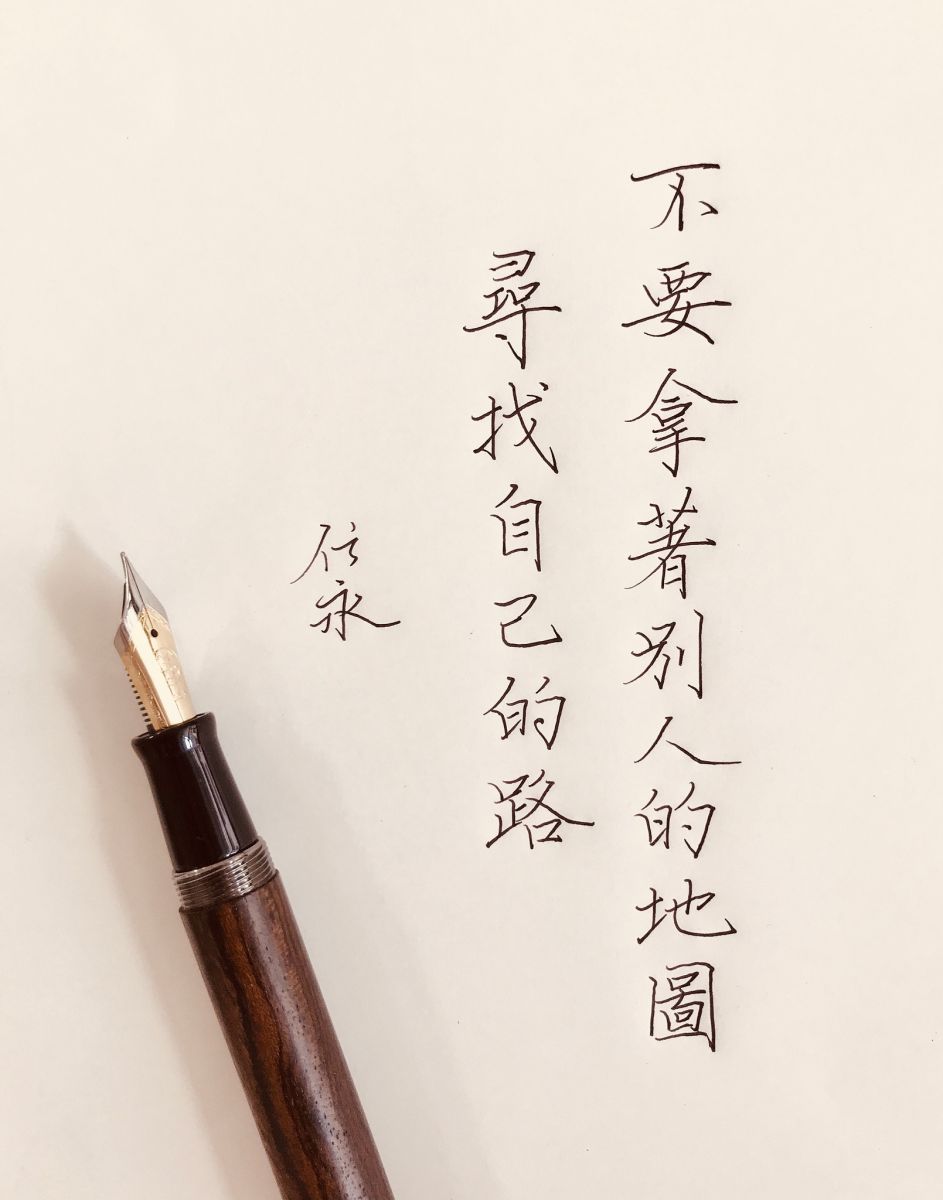 不要拿著別人的地圖
尋找自己的路
信永